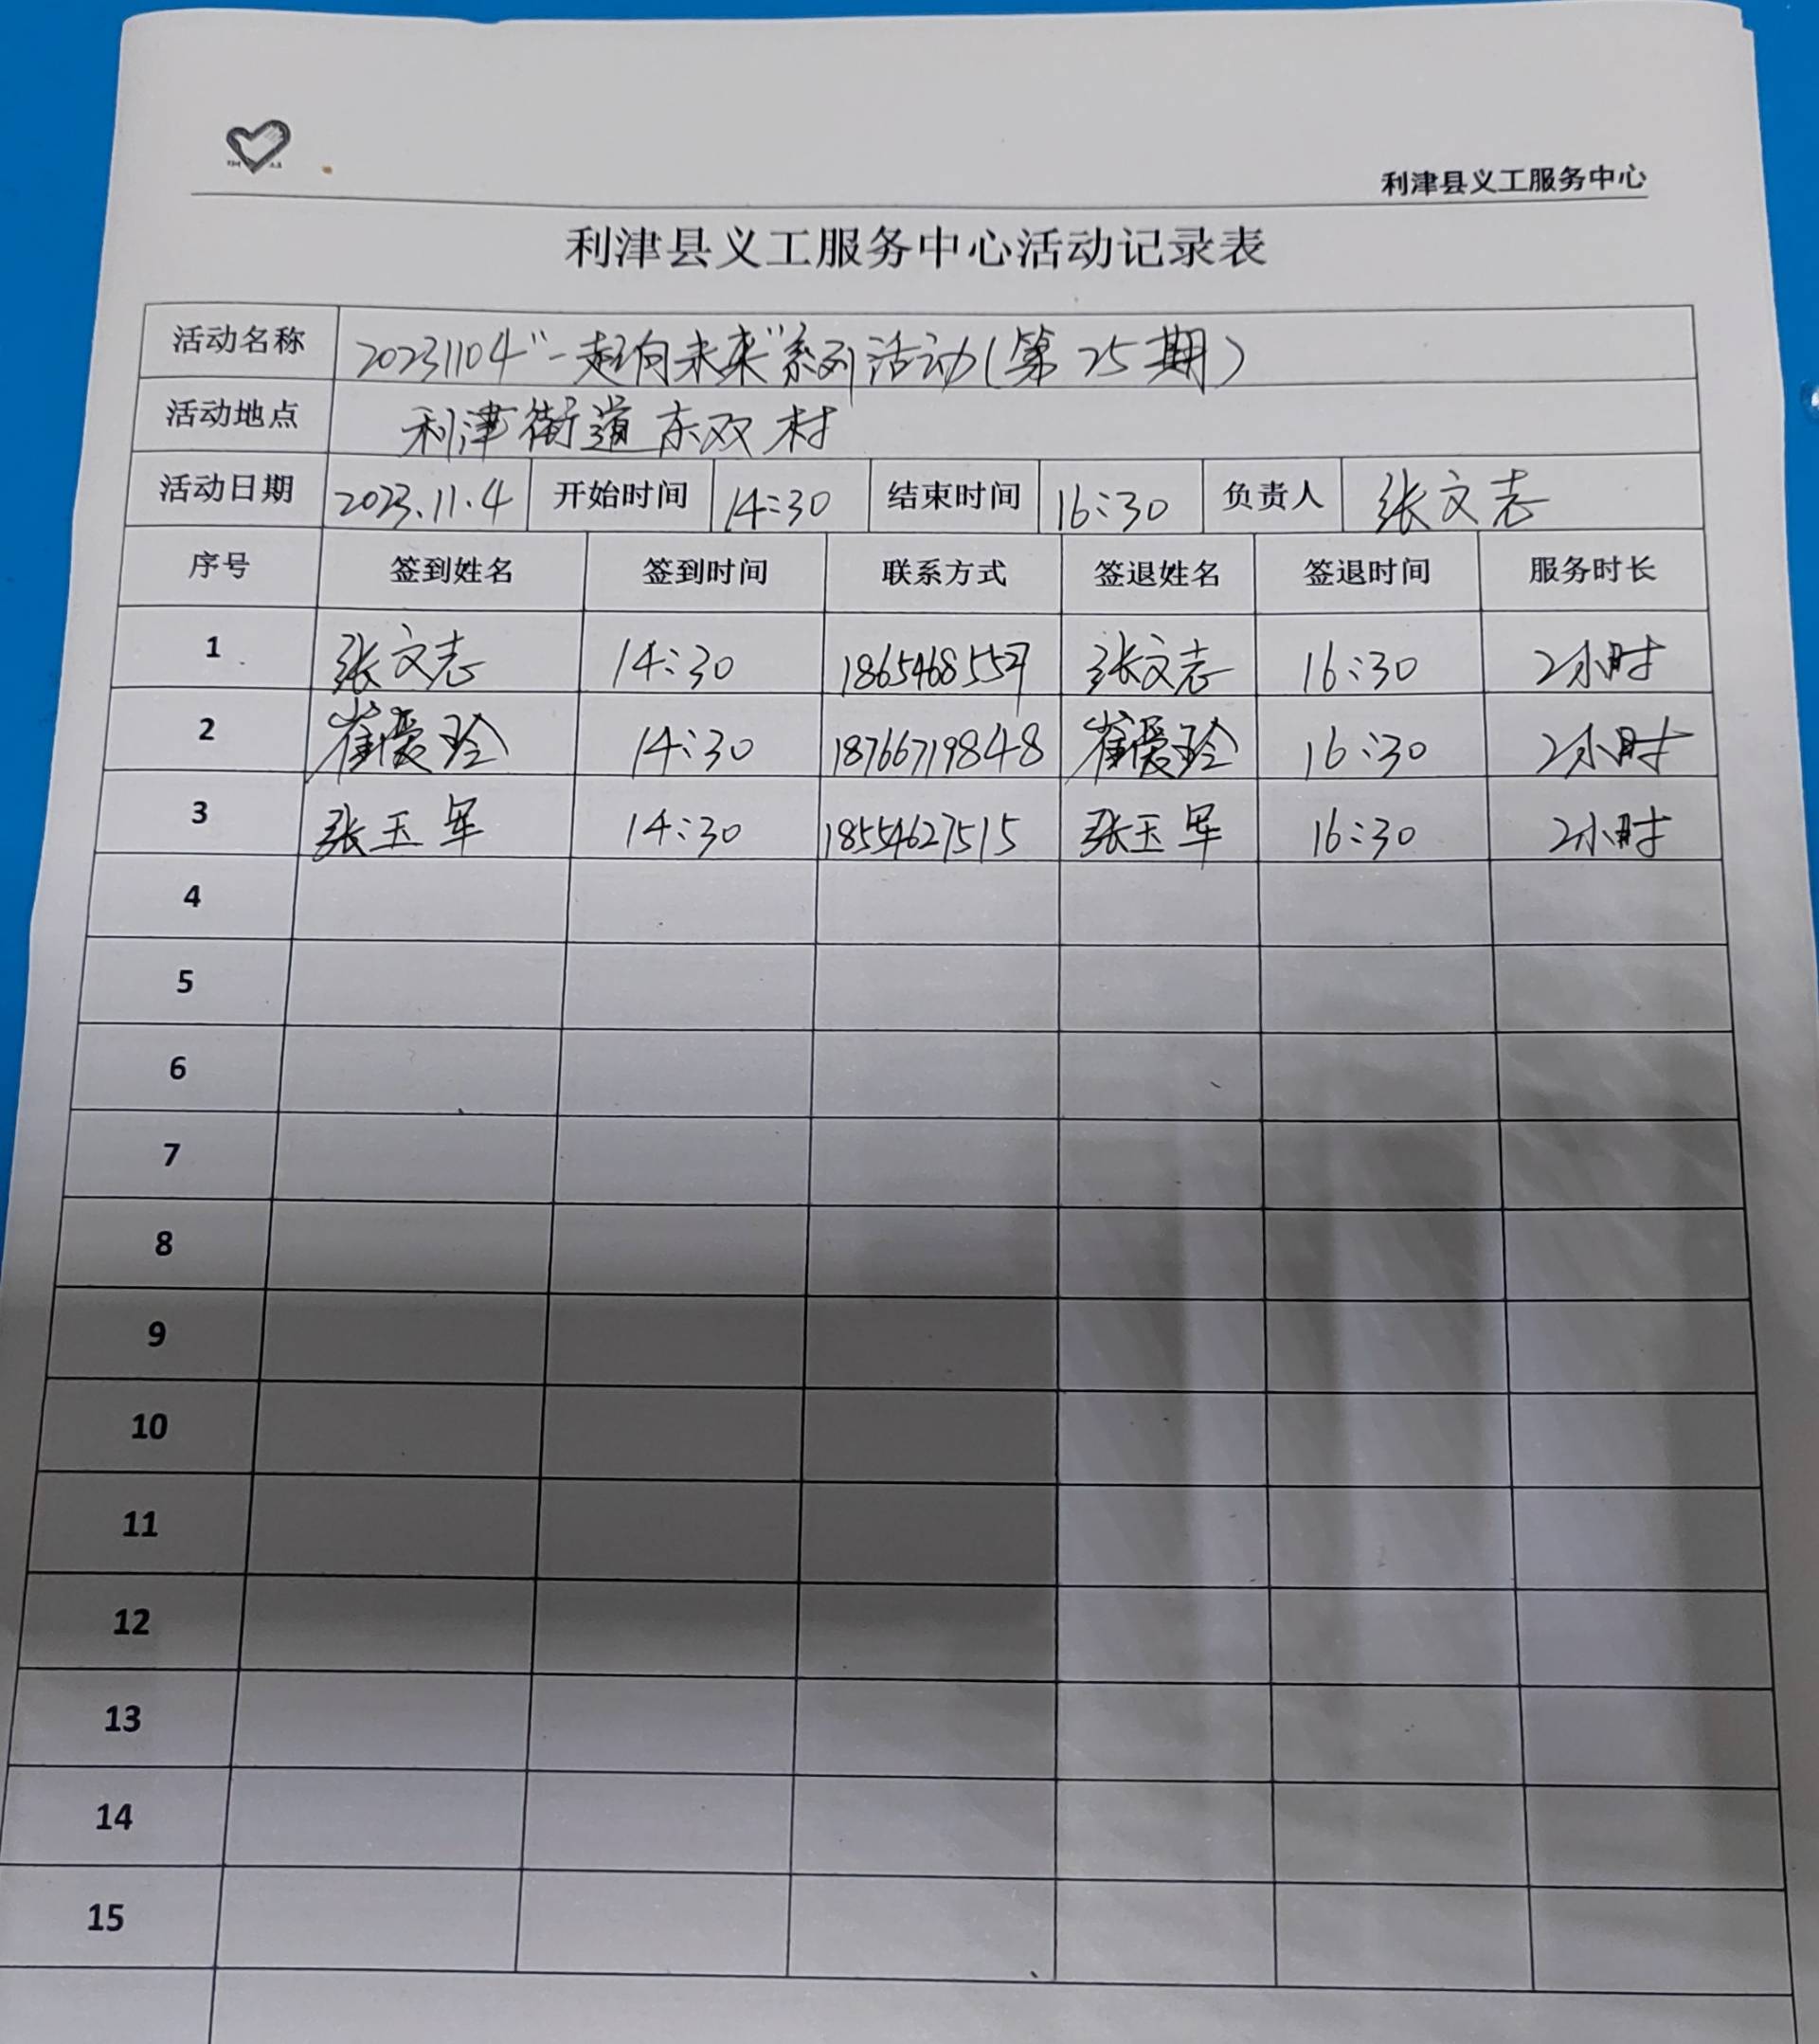 利津县义工服务中心
利津县义工服务中心活动记录表
活动名称 20231104“一起向未来”系列活动(第25期)
活动地点 利津街道东双村
活动日期 2023.11.4 开始时间 14:30 结束时间 16:30 负责人 张文志
序号 签到姓名 签到时间 联系方式 签退姓名 签退时间 服务时长
1 张文志 14:30 张文志 16:30 2小时
2 崔爱玲 14:30 18766719848 崔爱玲 16:30 2小时
3 张玉军 14:30 18554627515 张玉军 16:30 2小时
4
5
6
7
8
9
10
11
12
13
14
15